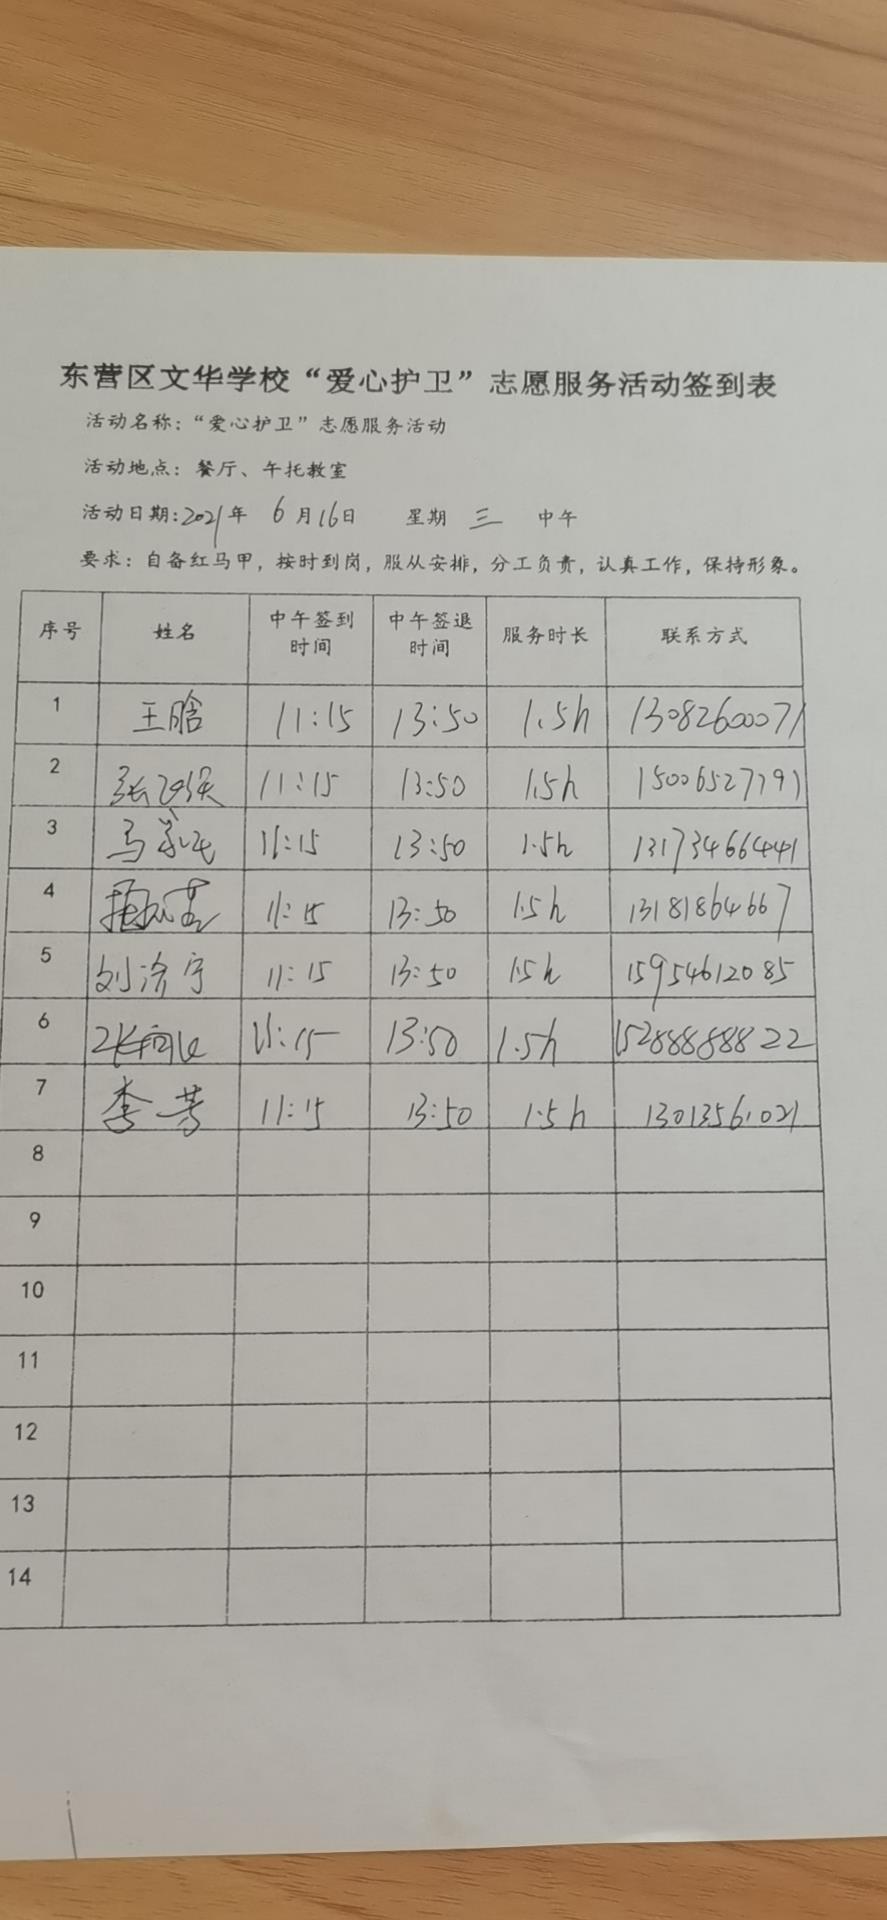 东营区文华学校“爱心护卫”志愿服务活动签到表
活动名称：“爱心护卫”志愿服务活动
活动地点：餐厅、午托教室
活动日期：2021年 6月16日 星期 三 中午
要求：自备红马甲，按时到岗，服从安排，分工负责，认真工作，保持形象。
序号 姓名 中午签到时间 中午签退时间 服务时长 联系方式
1 王晗 11:15 13:50 1.5h 13082600071
2 11:15 13:50 1.5h 15006527791
3 11:15 13:50 1.5h 13173466441
4 11:15 13:50 1.5h 13181864667
5 刘济宁 11:15 13:50 1.5h 15954612085
6 11:15 13:50 1.5h 15288888822
7 李芳 11:15 13:50 1.5h 13013561021
8
9
10
11
12
13
14